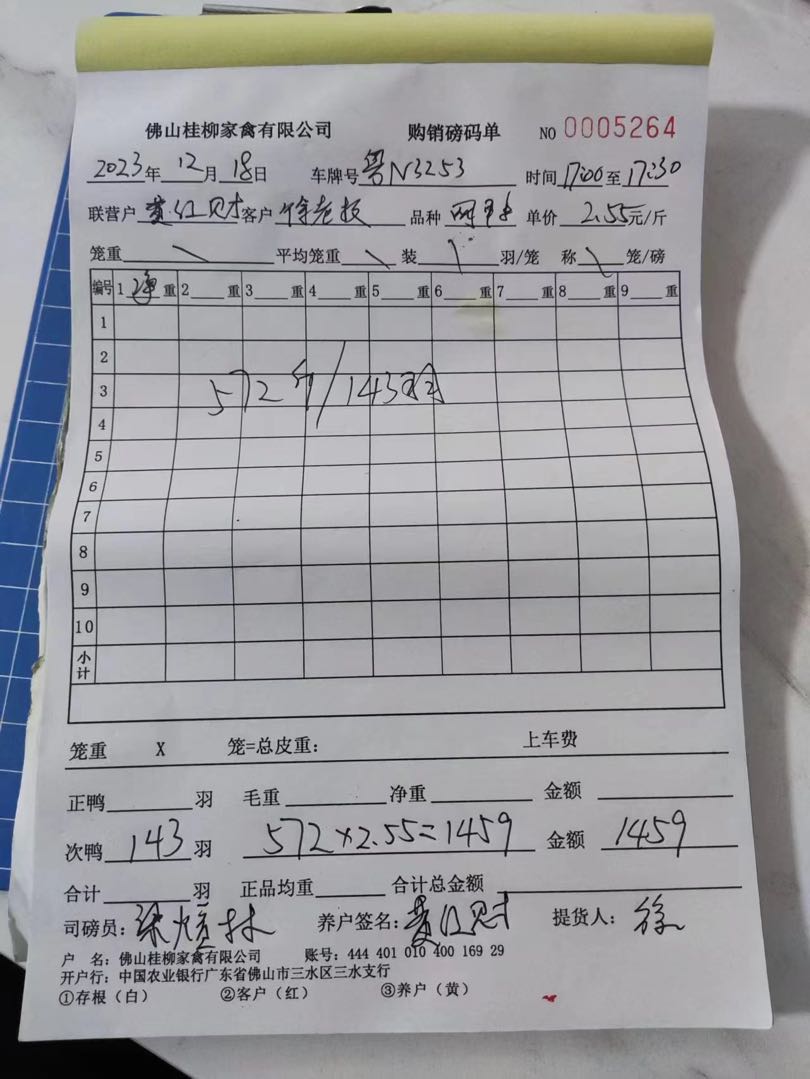 佛山桂柳家禽有限公司 购销磅码单 NO 0005264
2023年 12月 18日 车牌号 粤N3253 时间 17:00 至 17:30
联营户 黄红财 客户 徐老板 品种 单价 2.55元/斤
笼重 \ 平均笼重 \ 装 \ 羽/笼 称 \ 笼/磅
编号 1 净 重 2 重 3 重 4 重 5 重 6 重 7 重 8 重 9 重
1
2
3 572斤/143羽
4
5
6
7
8
9
10
小计
笼重 X 笼=总皮重: 上车费
正鸭 羽 毛重 净重 金额
次鸭 143 羽 572×2.55=1459 金额 1459
合计 羽 正品均重 合计总金额
司磅员: 养户签名: 黄红财 提货人: 徐
户 名: 佛山桂柳家禽有限公司 账号: 444 401 010 400 169 29
开户行: 中国农业银行广东省佛山市三水区三水支行
①存根（白） ②客户（红） ③养户（黄）